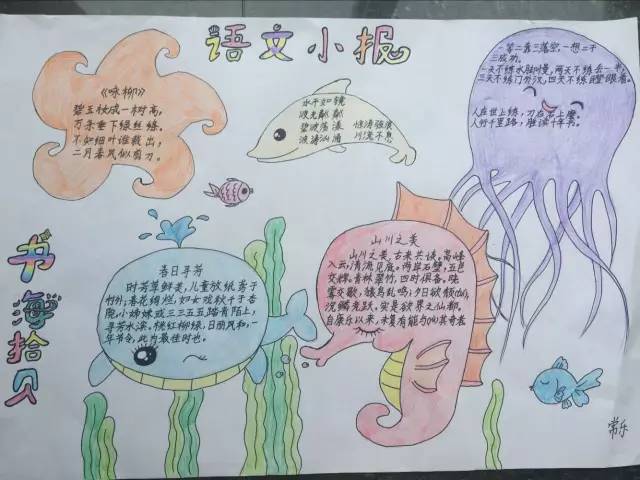 语文小报
《咏柳》
碧玉妆成一树高，
万条垂下绿丝绦。
不知细叶谁裁出，
二月春风似剪刀。
水平如镜
波光粼粼
碧波荡漾
波涛汹涌
惊涛骇浪
川流不息
一等二靠三落空，一想二干
三成功。
一天不练手脚慢，两天不练丢一半，
三天不练门外汉，四天不练瞪眼看。
人在世上练，刀在石上磨。
人行千里路，胜读十年书。
书海拾贝
春日寻芳
时芳草鲜美，儿童放纸鸢于
村外，春花绚烂，如女戏秋千于杏
院，小姊妹或三三五五踏青陌上，
寻芳水滨。桃红柳绿，日丽风和，一
年节令，此为最佳时也。
山川之美
山川之美，古来共谈。高峰
入云，清流见底。两岸石壁，五色
交辉。青林翠竹，四时俱备。晓
雾交歇，猿鸟乱鸣；夕日欲颓(tuí)，
沉鳞竞跃。实是欲界之仙都。
自康乐以来，未复有能与(yù)其奇者
常乐